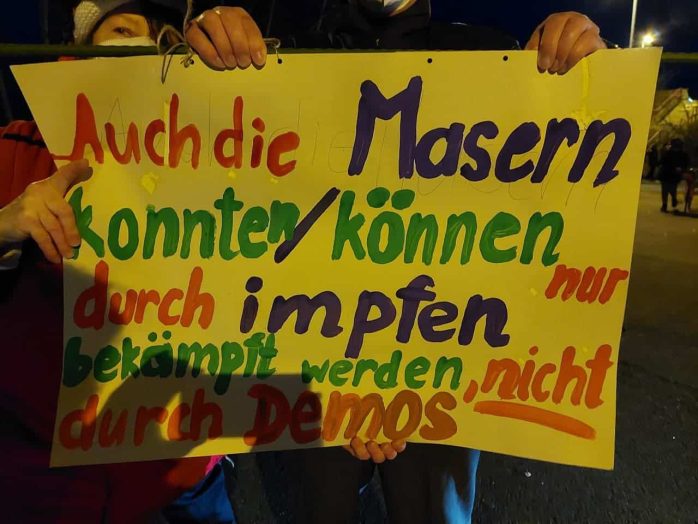 Auch die Masern
konnten/können
durch impfen nur
bekämpft werden, nicht
durch Demos